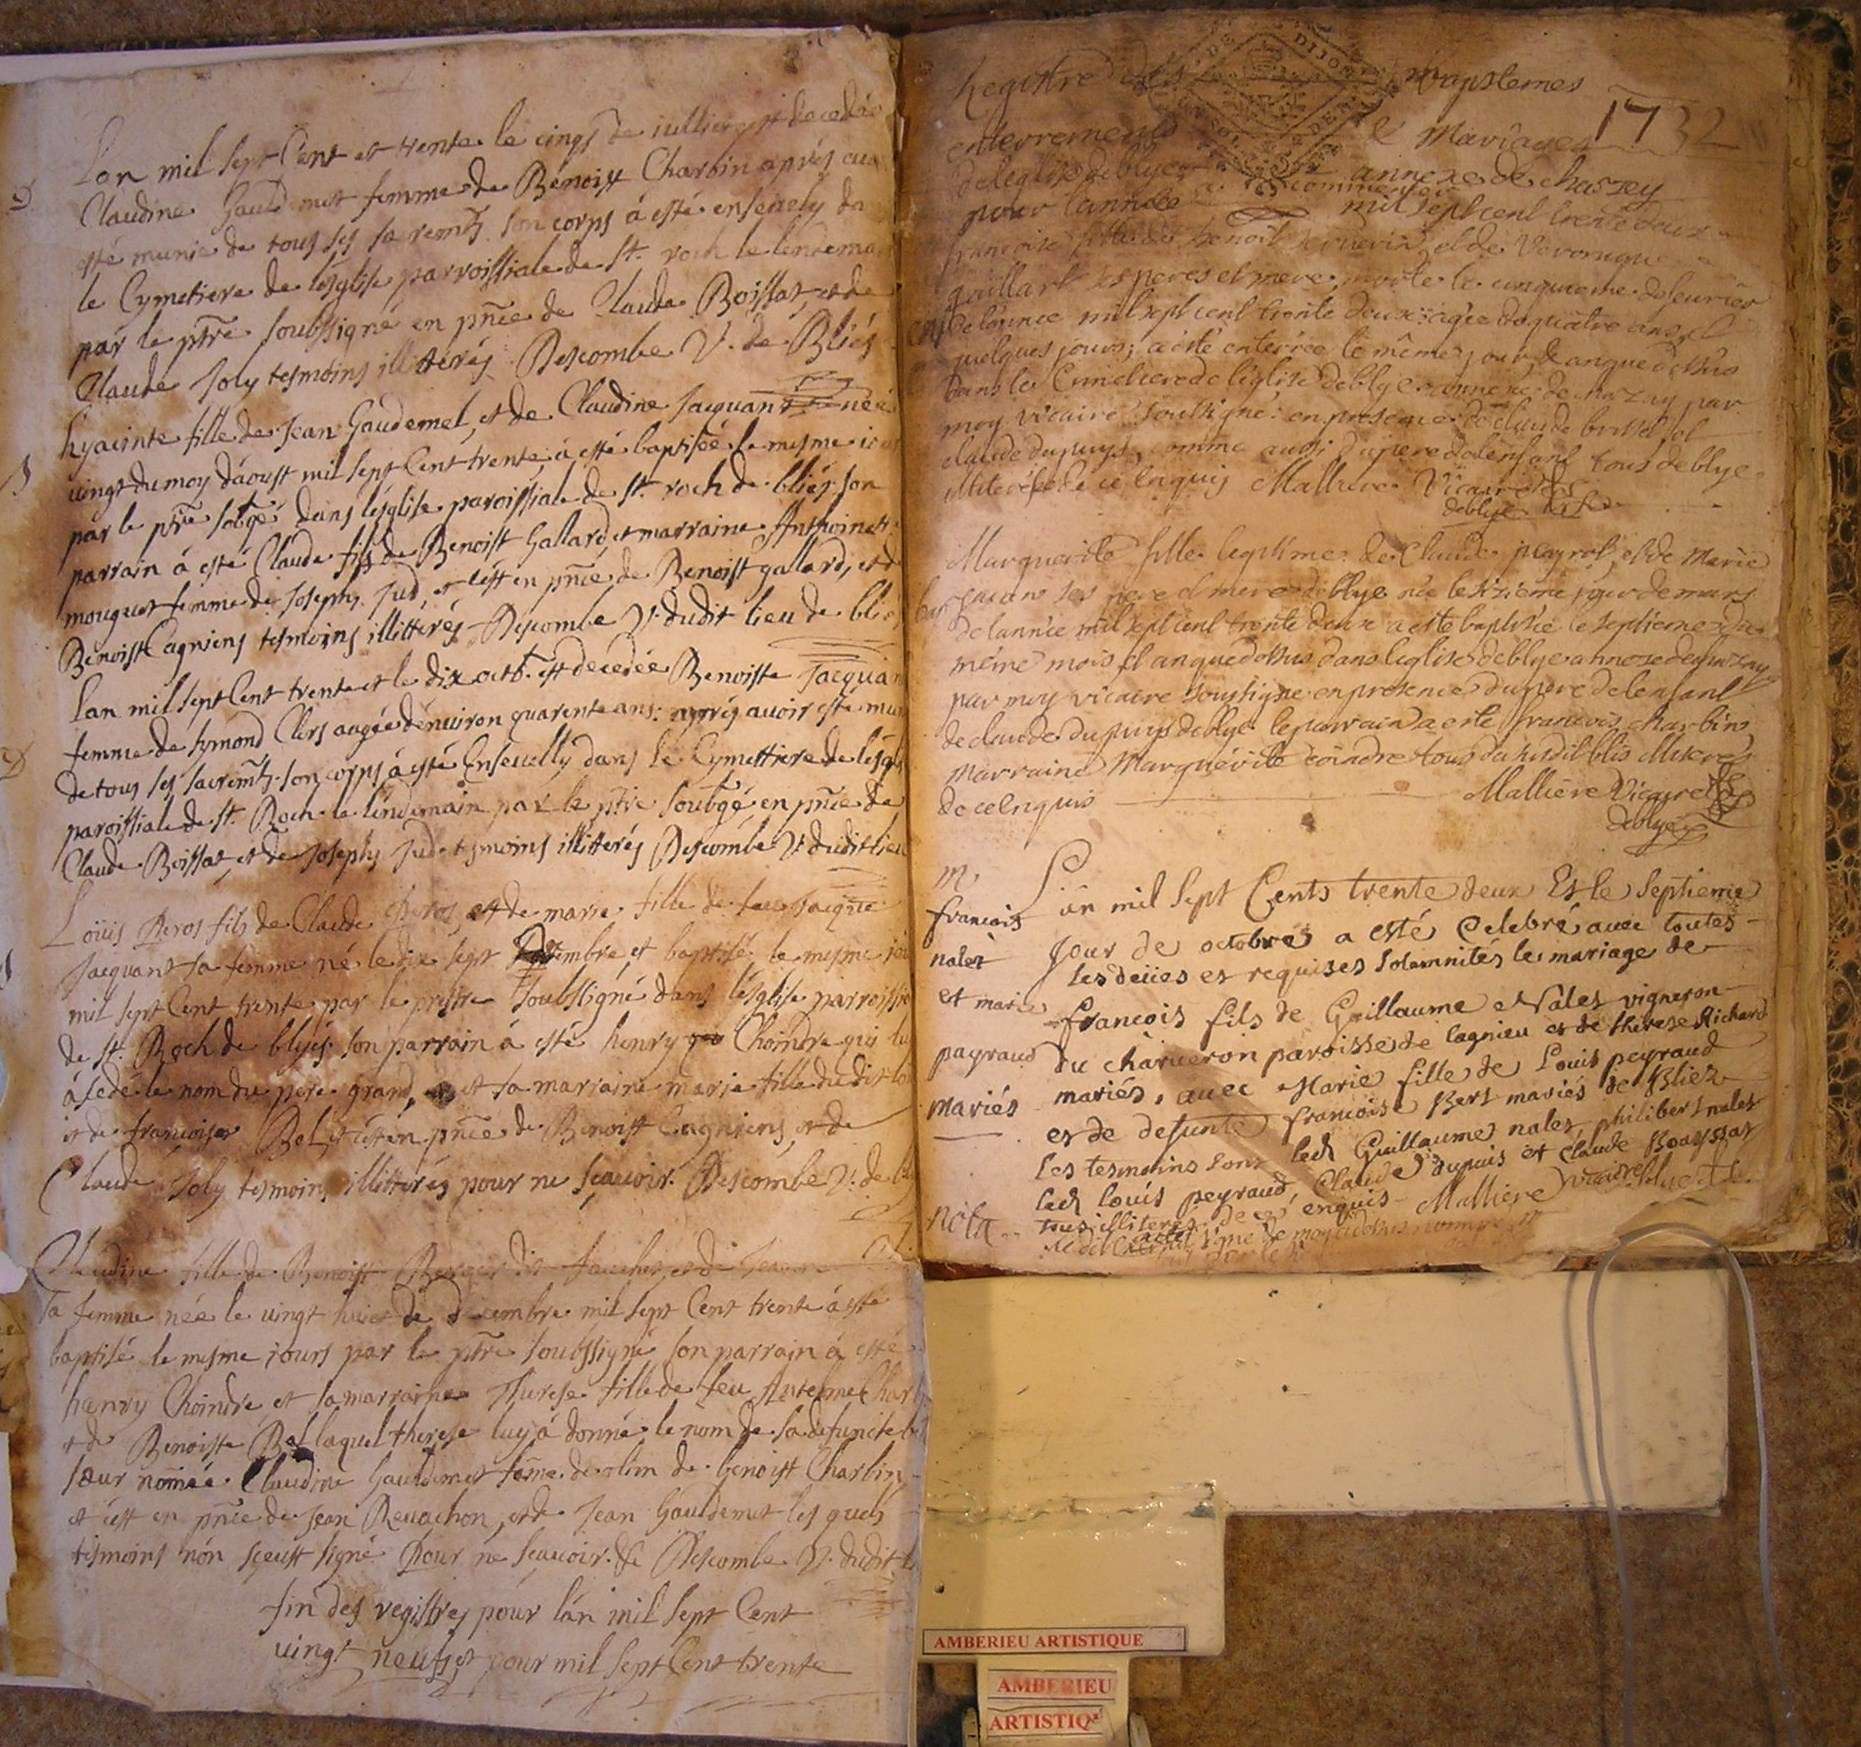 Lan mil sept Cent et trente le cinq de iullier est decedée
Claudine Gaudemet femme de Benoist Charbin aprés
esté munie de tous ses sacremts. son corps á esté enseuely da
le Cymetiere de lesglise parroissiale de St. roch le lendema
par le ptre soubssigné en pnce de Claude Boissat, et de
Claude Joly tesmoins illitterés Descombe V. de Bliés
hyacinte fille de Jean Gaudemel, et de Claudine Jacquant née
uingt du moy daoust mil sept Cent trente, á esté baptisée le mesme iour
par le ptre sobgé dans lésglise paroissiale de St. roch de bliés. son
parrain á esté Claude fils de Benoist Gallard, et marraine Anthoinette
mouguet femme de Joseph Jud, et cest en pnce de Benoist gallard, et d
Benoist Cagniens tesmoins illitterés Descombe V. dudit lieu de blié
Lan mil sept Cent trente et le dix octb. est decedée Benoiste Jacquan
femme de Symond Clers aagée denuiron quarente ans: aprés auoir esté mun
de tous ses sacremts. son corps á esté Enseuelly dans le Cymettiere de lésgl
paroissiale de St. Roch le lendemain par le ptre soubgé en pnce de
Claude Boissat, et de Joseph Jud tesmoins illitterés Descombe V. dudit lieu
Loüis Peros fils de Claude Peros, et de marie fille de feu Jacque
Jacquant sa femme né le dix sept et baptisé le mesme iou
mil sept Cent trente par le prestre soubssigné dans lésglise parroissia
de St. Roch de blyés. son parrain á esté henry Choindre qui luy
á cedé le nom du pere grand, et sa marraine marie fille dudit
et de françoise Bel, et cest en pnce de Benoist Cagniens, et de
Claude Joly tesmoins illitterés pour ne sçauoir. Descombe V. de bl
Claudine fille de Benoist Berger dit faucher, et de Jeanne
sa femme née le uingt huict de decembre mil sept Cent trente á esté
baptisé le mesme iours par le ptre soubssigné son parrain á esté
henry Choindre et sa marraine Therese fille de feu Antelme Charb
et de Benoiste Bal laquel therese luy á donné le nom de sa defuncte
sœur nomée Claudine Gauldemet fame de olim de benoist Charbin
et cest en pnce de Jean Reuachon, et de Jean Gauldemet les quels
tesmoins nón sceust signé Pour né sçauoir. Descombe V. dudit
fin des registres pour lán mil sept Cent
uingt neufs, et pour mil sept Cent trente
Registre des Baptemes
1732
enterrements & Mariages
de leglise de blyes annexe de chazey
pour lannée mil sept cent trente deux
francoise fille de benoit et de Veronique
Gaillart ses peres et mere, morte le cinquieme de feurier
de lannee mil sept cent trente deux agée de quatre ans et
quelques jours; a eté enterrée le même jour, et an que dessus
dans le Cimetiere de leglise de blye annexe de chazay par
moy vicaire soussigné: en presence de claude boissat et
claude dupuys, comme aussi du pere de lenfant tous de blye
illiterés de ce enquis Malliere Vicaire
de blye
Marguerite fille legitime de Claude peyrot, et de Marie
Jacant ses pere et mere de blye née le sizieme jour de mars
de lannee mil sept cent trente deux a esté baptisée le septieme du
même mois et an que dessus dans leglise de blye annexe de chazay
par moy vicaire soussigne en presence du pere de lenfant
de claude dupuys de blye. le parrain a esté francois charbin
marraine Marguérite coindre tous du susdit blie illiteres
de ce enquis Malliere Vicaire
de blye
m.
francois
nalet
et marie
payraud
mariés
Lán mil sept Cents trente deux Et le septieme
Jour de octobre a esté Celebré auec toutes
les deües et requises solemnités le mariage de
françois fils de Guillaume Nalet vigneron
du charueron paroisse de lagnieu et de therese Richard
mariés, auec Marie fille de Louis peyraud
et de defunte francoise Bert mariés de Bliez
les tesmoins sont led. Guillaume nalet, philibert nalet
led. louis peyraud, Claude dupuis et Claude Boayssat
tous illiteres de ce enquis Malliere vicaire blye
nota
AMBERIEU ARTISTIQUE
AMBERIEU
ARTISTIQ